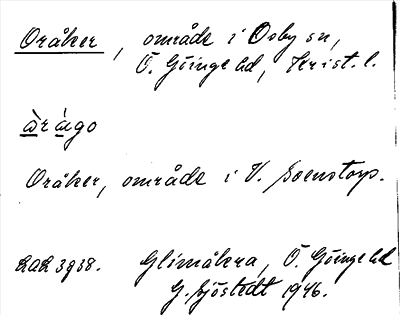 Oråker, område i Osby sn,
Ö. Göinge hd, Krist. l.
àrágo
Oråker, område i V. Svenstorp.
RAÄ 3938. Glimåkra, Ö. Göinge hd
G. Sjöstedt 1946.